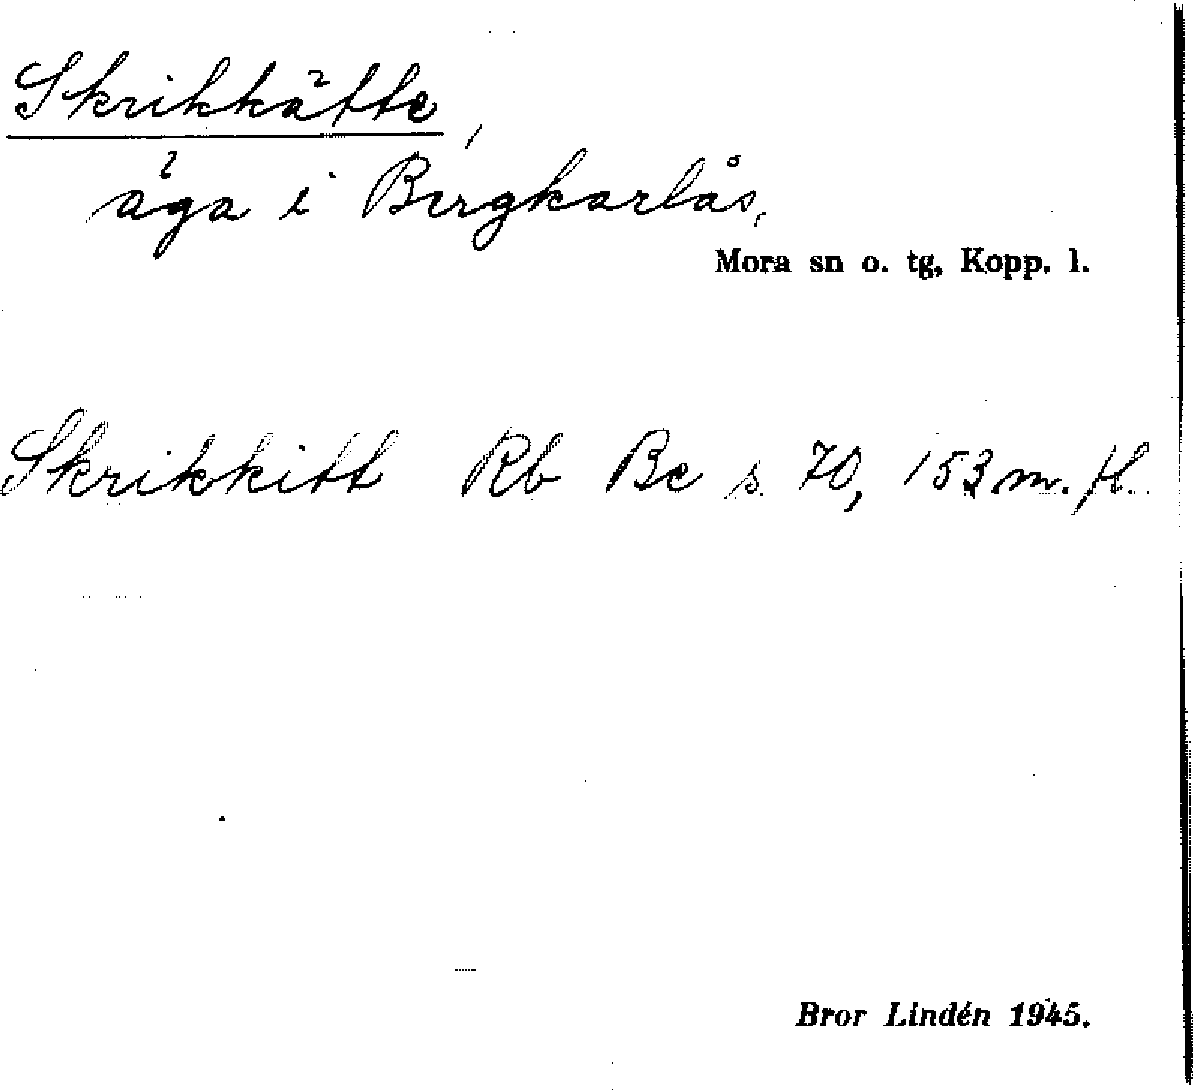 Skrikkätte,
äga i Bergkarlås,
Mora sn o. tg, Kopp. l.
Skrikkitt Rb Be s. 70, 153 m. fl.
Bror Lindén 1945.